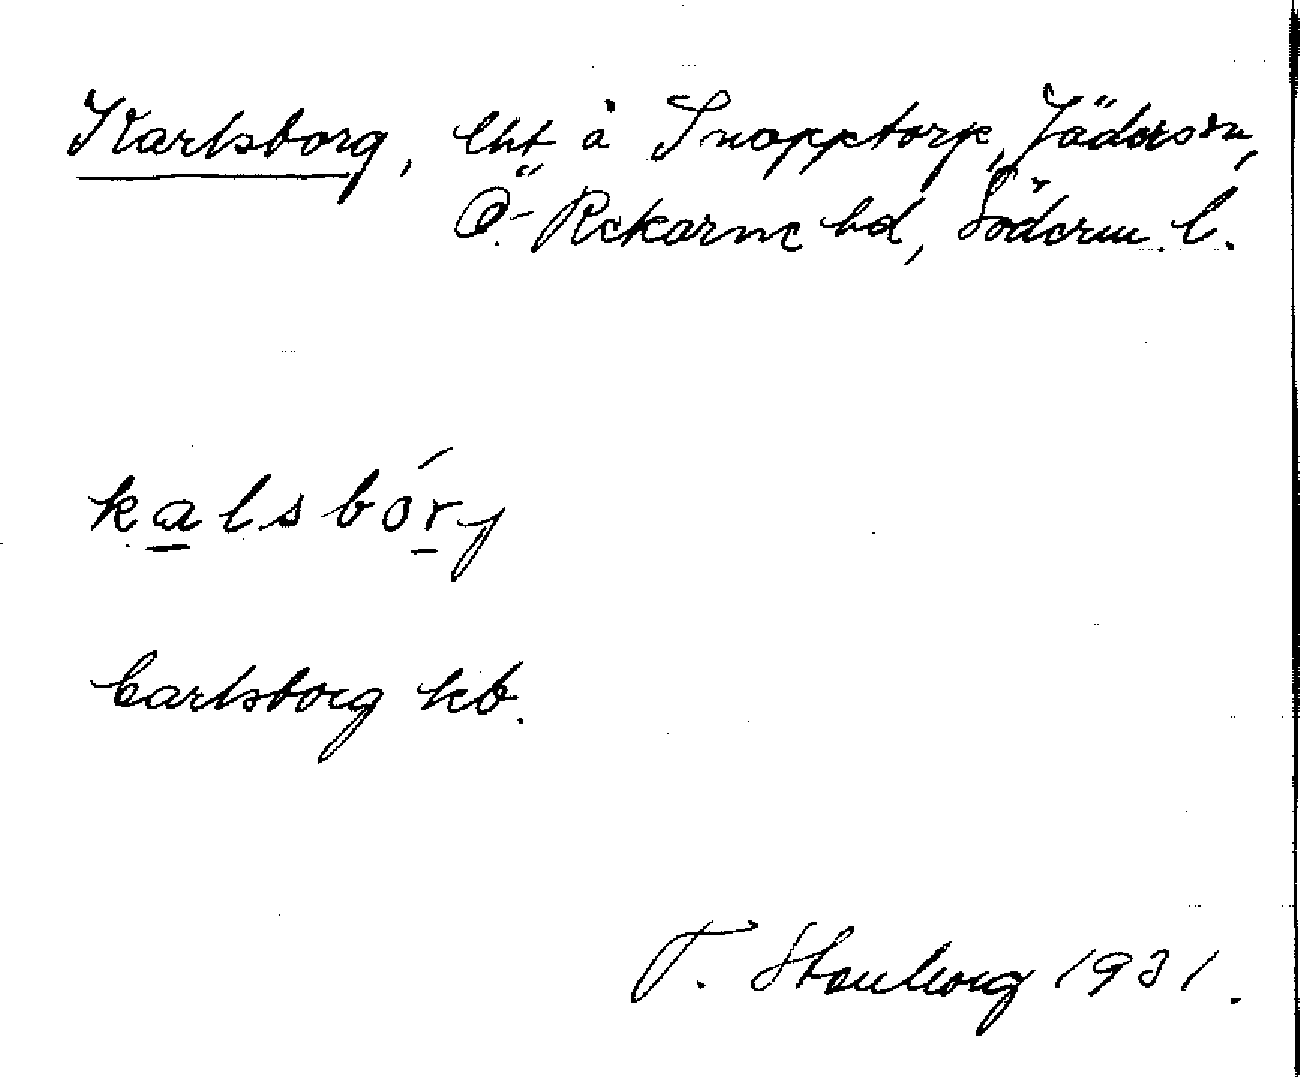 Karlsborg, lht å Snopptorp, Jäders sn,
Ö. Rekarne hd, Söderm. l.
kalsbórj
Carlsborg kb.
T. 1931.